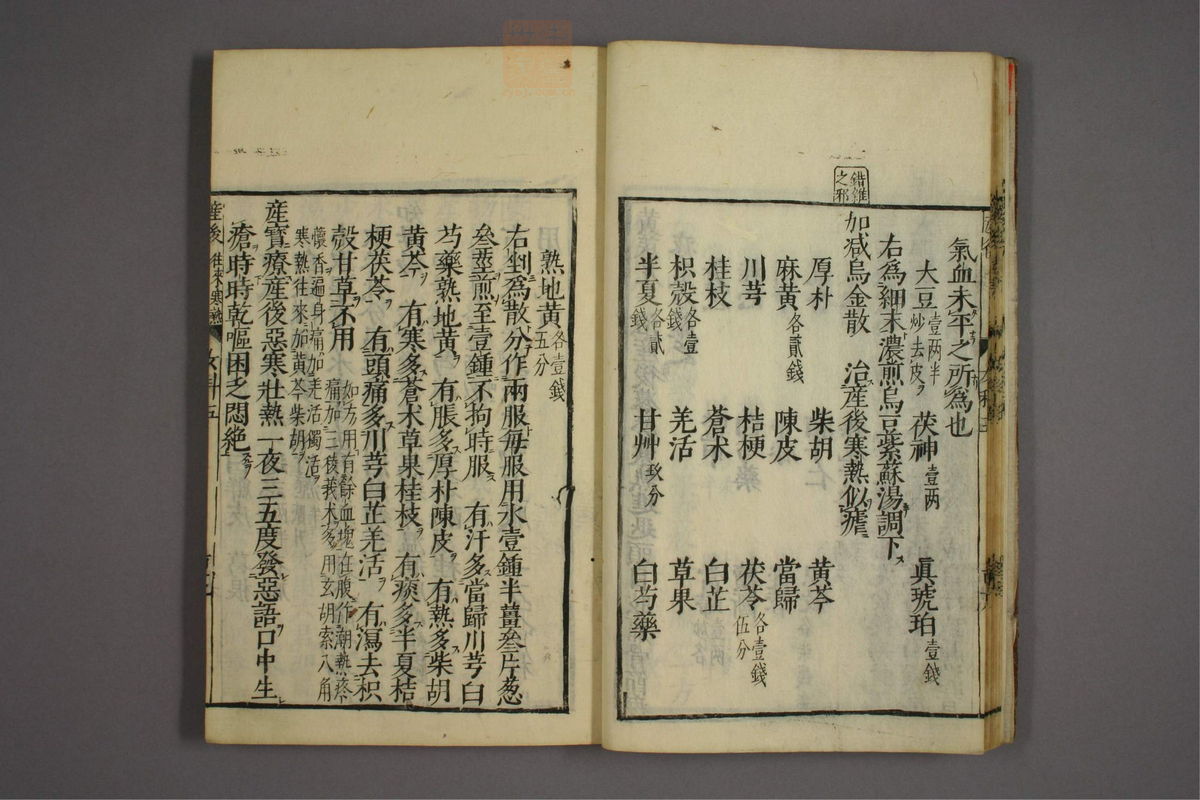 氣血未平之所為也
大豆壹两半炒去皮 茯神壹两 眞琥珀壹錢
右為細末濃煎烏豆紫蘇湯調下
錯雜之邪
加減烏金散 治産後寒熱似瘧
厚朴 柴胡 黄芩
麻黄各貳錢 陳皮 當歸
川芎 桔梗 茯苓各壹錢伍分
桂枝 蒼朮 白芷
枳殻各壹錢 羌活 草果
半夏各貳錢 甘艸玖分 白芍藥
熟地黄各壹錢五分
右剉為散分作兩服每服用水壹鍾半薑叁片葱
叁莖煎至壹鍾不拘時服 有汗多當歸川芎白
芍藥熟地黄 有脹多厚朴陳皮 有熱多柴胡
黄芩 有寒多蒼朮草果桂枝 有痰多半夏桔
梗茯苓 有頭痛多川芎白芷羌活 有瀉去枳
殻甘草不用 如方用有餘血塊在腹作潮熱疼
痛加三稜莪朮多用玄胡索八角
茴香遍身痛加羌活獨活
寒熱往來加黄芩柴胡
産寶療産後惡寒壯熱一夜三五度發惡語口中生
瘡時時乾嘔困乏悶絶
産後 往來寒熱